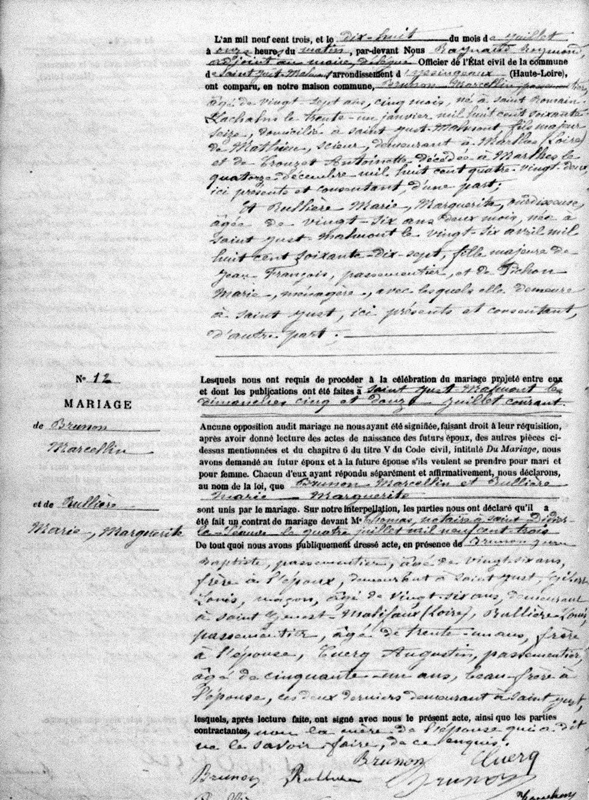 L'an mil neuf cent trois, et le dix-huit du mois de juillet
à onze heure, du matin, par-devant Nous Raynaud
adjoint au maire, Officier de l'État civil de la commune
de Saint Just-Malmont arrondissement d'yssingeaux (Haute-Loire),
ont comparu, en notre maison commune, Brunon Marcellin passementier,
âgé de vingt-sept ans, cinq mois, né à Saint Romain
Lachalm le trente-un janvier mil huit cent soixante
seize, domicilié à Saint Just-Malmont, fils majeur
de Mathieu, scieur, demeurant à Marlhes (Loire)
et de Crouzet Antoinette, décédée à Marlhes le
quatorze décembre mil huit cent quatre-vingt-deux
ici présents et consentant, d'une part;
Et Bullière Marie, Marguerite, ourdisseuse,
âgée de vingt-six ans deux mois, née à
Saint Just-Malmont le vingt-six avril mil
huit cent soixante-dix-sept, fille majeure de
Jean-François, passementier, et de Pichon
Marie, ménagère, avec lesquels elle demeure
à Saint Just, ici présents et consentant,
d'autre part.
N° 12
MARIAGE
de Brunon
Marcellin
et de Bullière
Marie, Marguerite
Lesquels nous ont requis de procéder à la célébration du mariage projeté entre eux
et dont les publications ont été faites à Saint Just-Malmont les
dimanches cinq et douze juillet courant.
Aucune opposition audit mariage ne nous ayant été signifiée, faisant droit à leur réquisition,
après avoir donné lecture des actes de naissance des futurs époux, des autres pièces ci-
dessus mentionnées et du chapitre 6 du titre V du Code civil, intitulé Du Mariage, nous
avons demandé au futur époux et à la future épouse s'ils veulent se prendre pour mari et
pour femme. Chacun d'eux ayant répondu séparément et affirmativement, nous déclarons,
au nom de la loi, que Brunon Marcellin et Bullière
Marie Marguerite
sont unis par le mariage. Sur notre interpellation, les parties nous ont déclaré qu'il a
été fait un contrat de mariage devant Me Thomas, notaire à Saint Didier
la Séauve le quatre juillet mil neuf cent trois
De tout quoi nous avons publiquement dressé acte, en présence de Brunon Jean
Baptiste, passementier, âgé de vingt-six ans,
frère à l'époux, demeurant à Saint Just,
Louis, maçon, âgé de vingt-six ans, demeurant
à Saint Genest-Malifaux (Loire), Bullière Louis,
passementier, âgé de trente-un ans, frère
à l'épouse, Cuerq Augustin, passementier,
âgé de cinquante-un ans, beau-frère à
l'épouse, ces deux derniers demeurant à Saint Just,
lesquels, après lecture faite, ont signé avec nous le présent acte, ainsi que les parties
contractantes, non la mère de l'épouse qui a dit
ne le savoir faire, de ce enquis.
Brunon Cuerq
Brunon Brunon